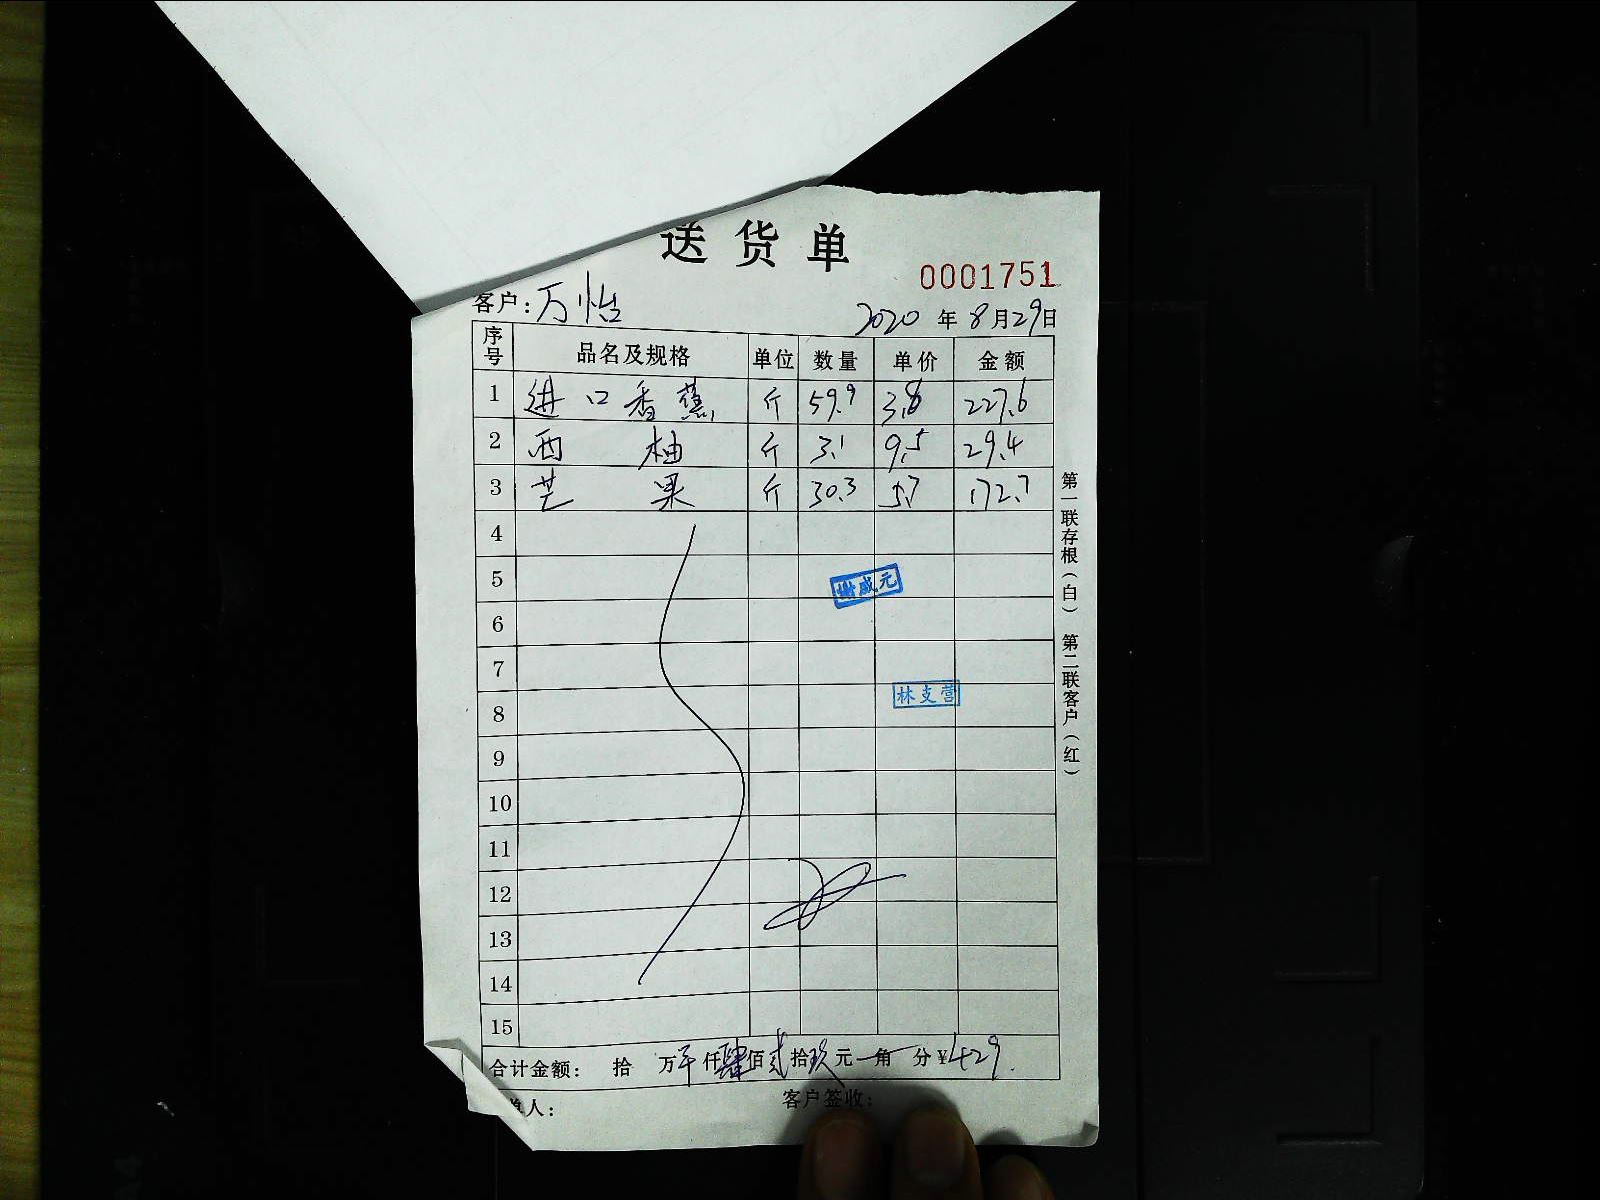 送货单
0001751
客户：万怡 2020年8月29日
序号 品名及规格 单位 数量 单价 金额
1 进口香蕉 斤 59.9 3.8 227.6
2 西柚 斤 3.1 9.5 29.4
3 芒果 斤 30.3 5.7 172.7
4
5
谢成元
6
7
8 林支营
9
10
11
12
13
14
15
合计金额： 拾 万 仟肆佰贰拾玖元 角 分¥429.
单人： 客户签收：
第一联存根（白） 第二联客户（红）